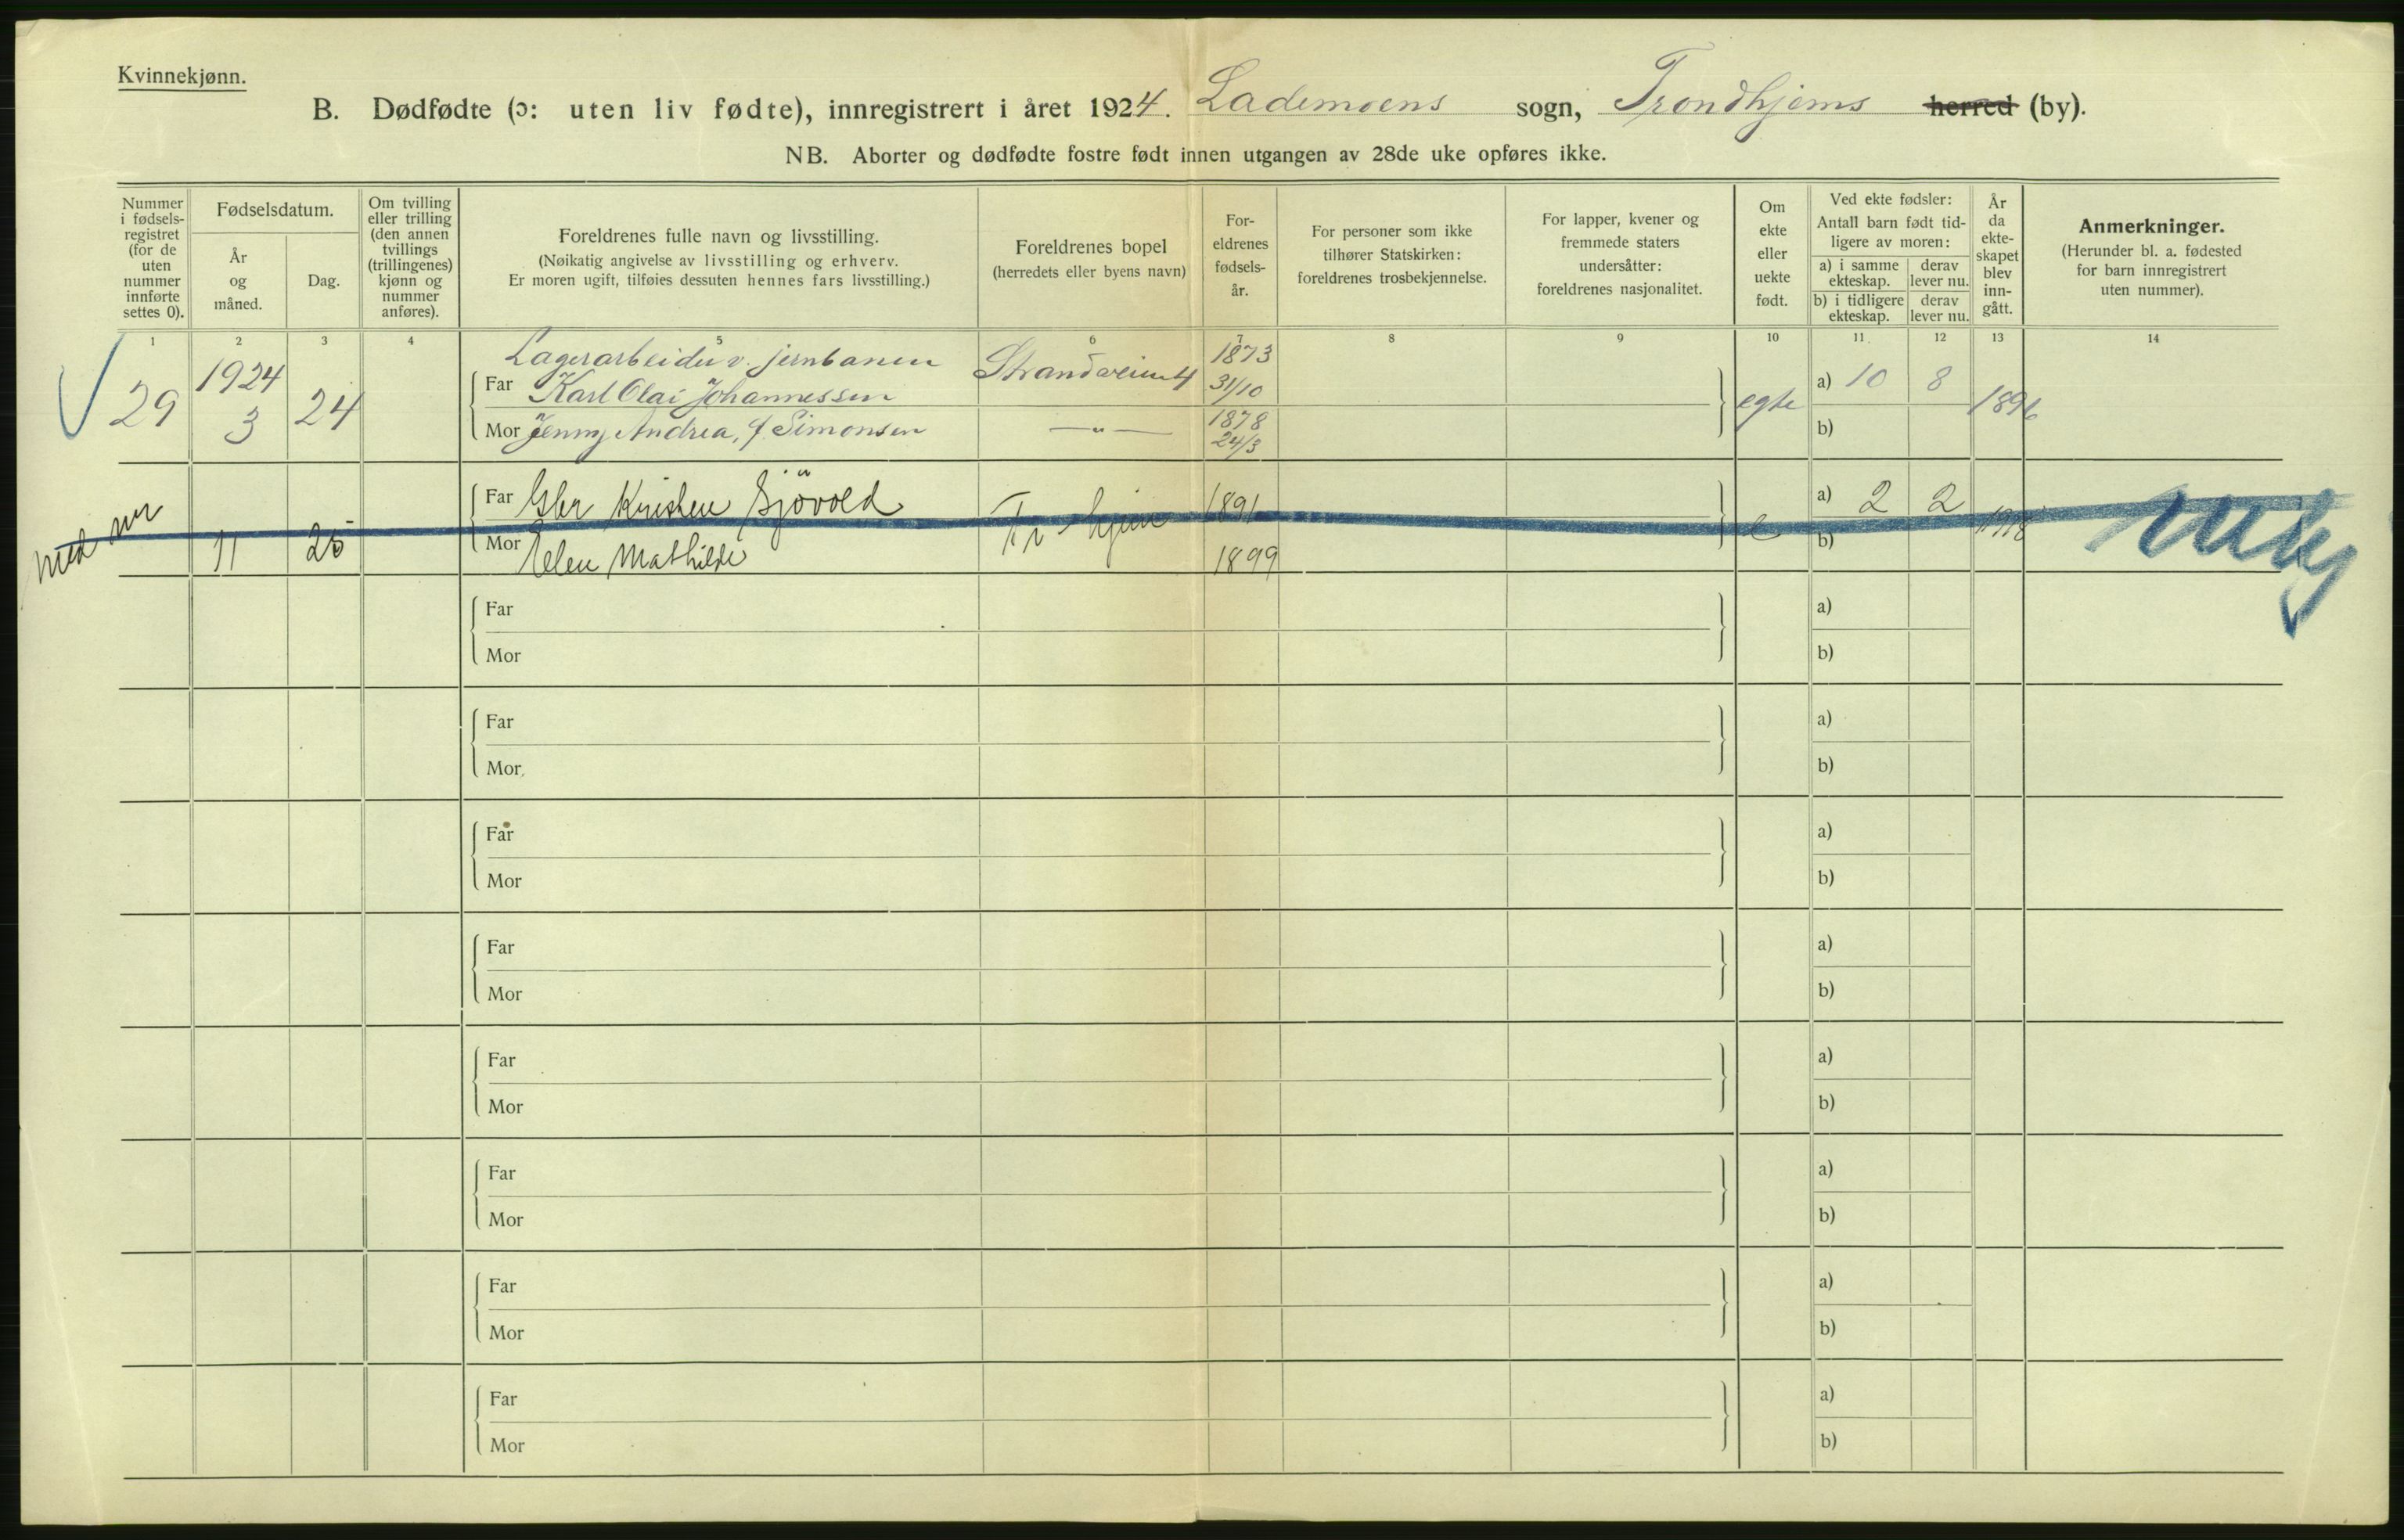 Kvinnekjønn.
B. Dødfødte (ɔ: uten liv fødte), innregistrert i året 1924. Lademoens sogn, Trondhjems herred (by).
NB. Aborter og dødfødte fostre født innen utgangen av 28de uke opføres ikke.
Nummer i fødsels-registret (for de uten nummer innførte settes 0).
Fødselsdatum.
År og måned.
Dag.
Om tvilling eller trilling (den annen tvillings (trillingenes) kjønn og nummer anføres).
Foreldrenes fulle navn og livsstilling.
(Nøikatig angivelse av livsstilling og erhverv.
Er moren ugift, tilføies dessuten hennes fars livsstilling.)
Foreldrenes bopel
(herredets eller byens navn)
For-eldrenes fødsels-år.
For personer som ikke tilhører Statskirken: foreldrenes trosbekjennelse.
For lapper, kvener og fremmede staters undersåtter: foreldrenes nasjonalitet.
Om ekte eller uekte født.
Ved ekte fødsler:
Antall barn født tid-ligere av moren:
a) i samme ekteskap.
derav lever nu.
b) i tidligere ekteskap.
derav lever nu.
År da ekte-skapet blev inn-gått.
Anmerkninger.
(Herunder bl. a. fødested for barn innregistrert uten nummer).
1 2 3 4 5 6 7 8 9 10 11. 12 13 14
Lagerarbeider v. jernbanen
29 1924 3 24 Far Karl Olai Johannessen Strandveien 4 1873 31/10 egte a) 10 8 1896
Mor Jenny Andrea, f. Simonsen —„— 1878 24/3 b)
med nr 11 25 Far Kristen Sjövold Tr-hjem 1891 e a) 2 2 1918
Mor Elen Mathilde 1899 b)
Far a)
Mor b)
Far a)
Mor b)
Far a)
Mor b)
Far a)
Mor b)
Far a)
Mor b)
Far a)
Mor b)
Far a)
Mor b)
Far a)
Mor b)